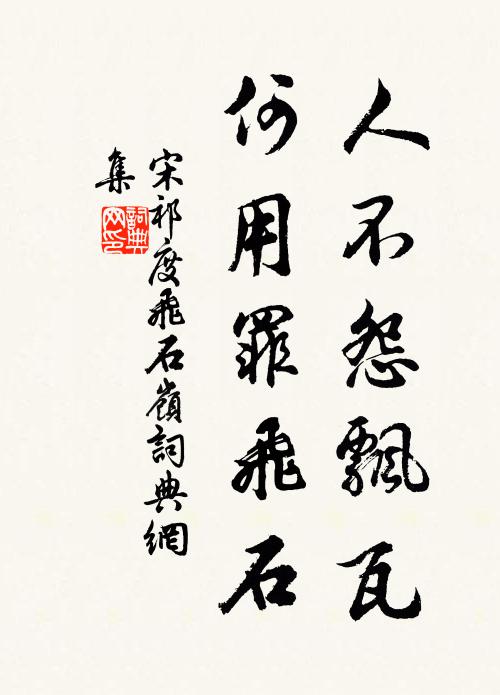 人不怨飄瓦
何用罪飛石
宋祁度飛石嶺詞典網
集
詞典
网印